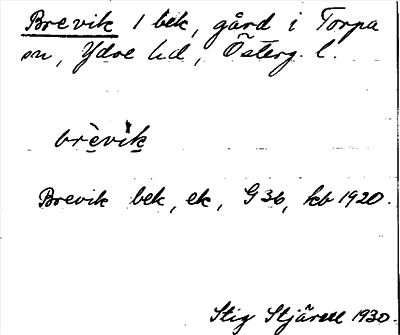 Brevik 1 bek, gård i Torpa
sn, Ydre hd, Österg. l.
brèvik
Brevik bek, ek, G 36, kb 1920.
Stig 1930.